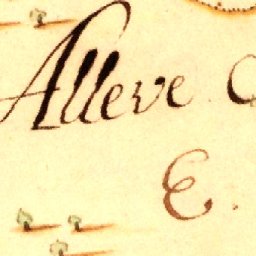 Alleve
E.